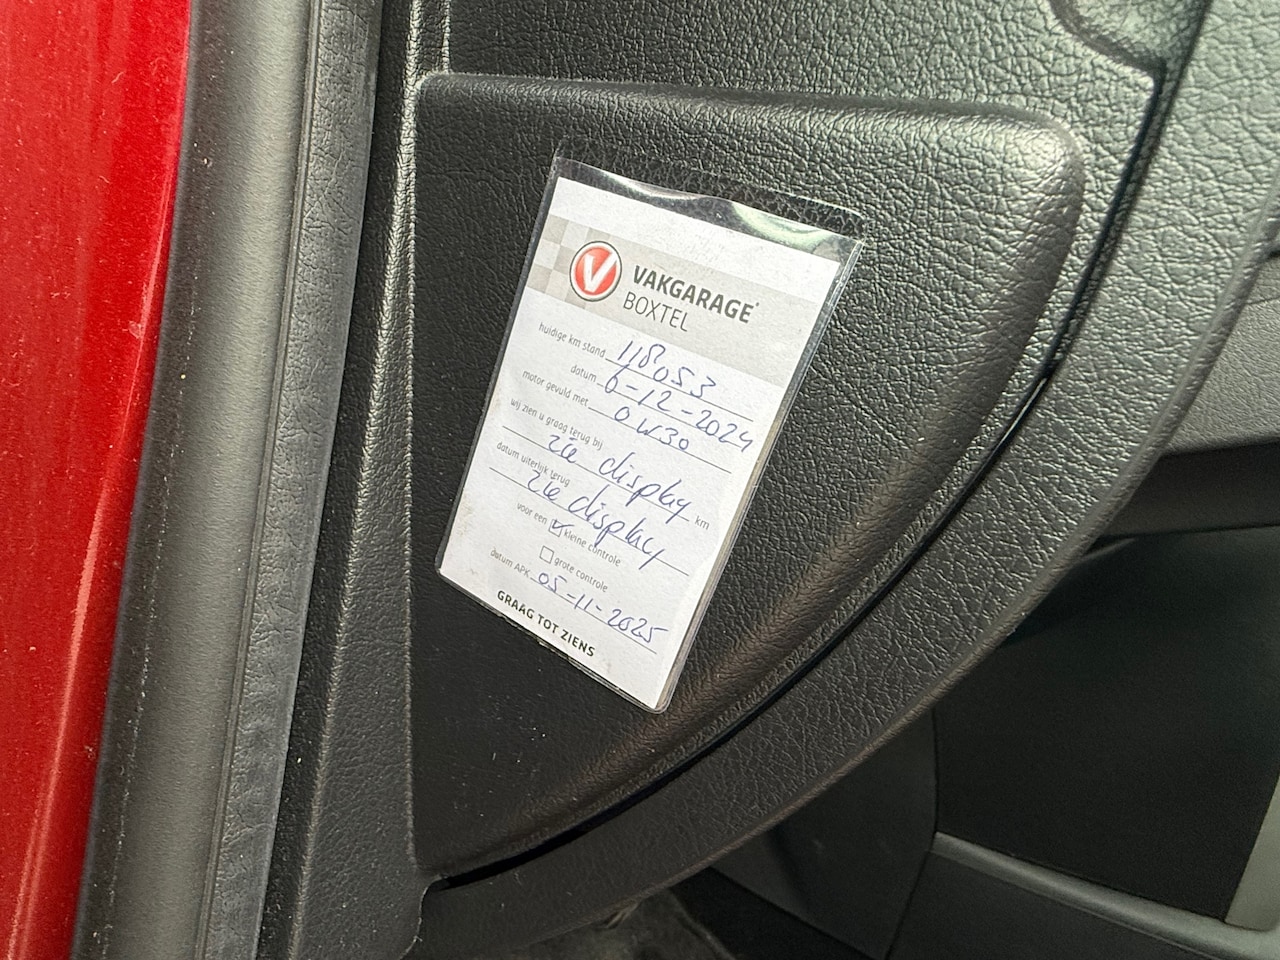 V
VAKGARAGE
BOXTEL
huidige km stand 118053
datum 6-12-2024
motor gevuld met 0W30
wij zien u graag terug bij
zie display km
datum uiterlijk terug
zie display
voor een ☑ kleine controle
☐ grote controle
datum APK 05-11-2025
GRAAG TOT ZIENS